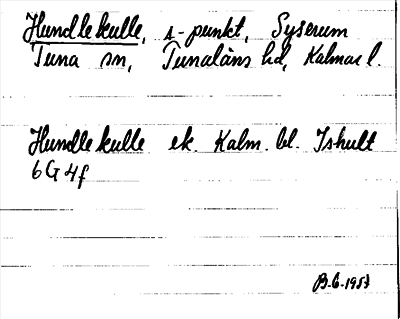 Hundlekulle, s-punkt, Syserum
Tuna sn, Tunaläns hd, Kalmar l.
Hundlekulle ek. Kalm. bl. Ishult
6G4f
B.E. 1957